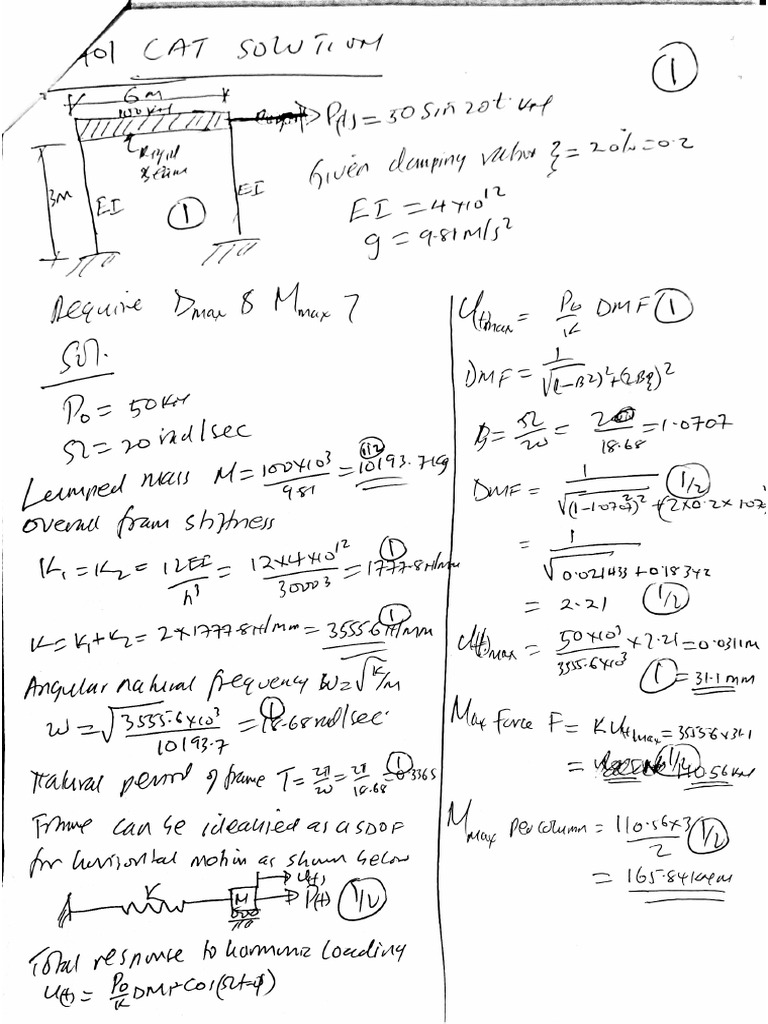 01 CAT SOLUTION
1
6m
100kN
P(t) = 30 Sin 20t kN
Rigid beam
3m
EI
EI
1
Given damping value ξ = 20% = 0.2
EI = 4×10^12
g = 9.81m/s²
Require Dmax & Mmax ?
Sol.
P0 = 50kN
Ω = 20 rad/sec
Lumped mass M = 100×10³/9.81 = 10193.7kg 1/2
overall fram stiffness
K1 = K2 = 12EI/h³ = 12×4×10^12/3000³ = 1777.8N/mm 1
K = K1+K2 = 2×1777.8N/mm = 3555.6N/mm 1
Angular natural frequency ω = √K/M
ω = √3555.6×10³/10193.7 = 18.68rad/sec 1
Natural period of frame T = 2π/ω = 2π/18.68 = 0.336s 1
Frame can be idealised as a SDOF
for horizontal motion as shown below
K
M
u(t)
P(t)
1/2
Total response to harmonic loading
U(t) = P0/K DMF cos(Ωt-φ)
U(t)max = P0/K DMF 1
DMF = 1/√(1-B²)²+(2Bξ)²
B = Ω/ω = 20/18.68 = 1.0707
DMF = 1/√(1-1.0707²)²+(2×0.2×1.07 1/2
= 1/√0.021433+0.18342
= 2.21 1/2
U(t)max = 50×10³/3555.6×10³ × 2.21 = 0.0311m
1 = 31.1mm
Max Force F = KU(t)max = 3555.6×31.1
= 110.56kN 1/2
Mmax per column = 110.56×3/2 1/2
= 165.84kNm